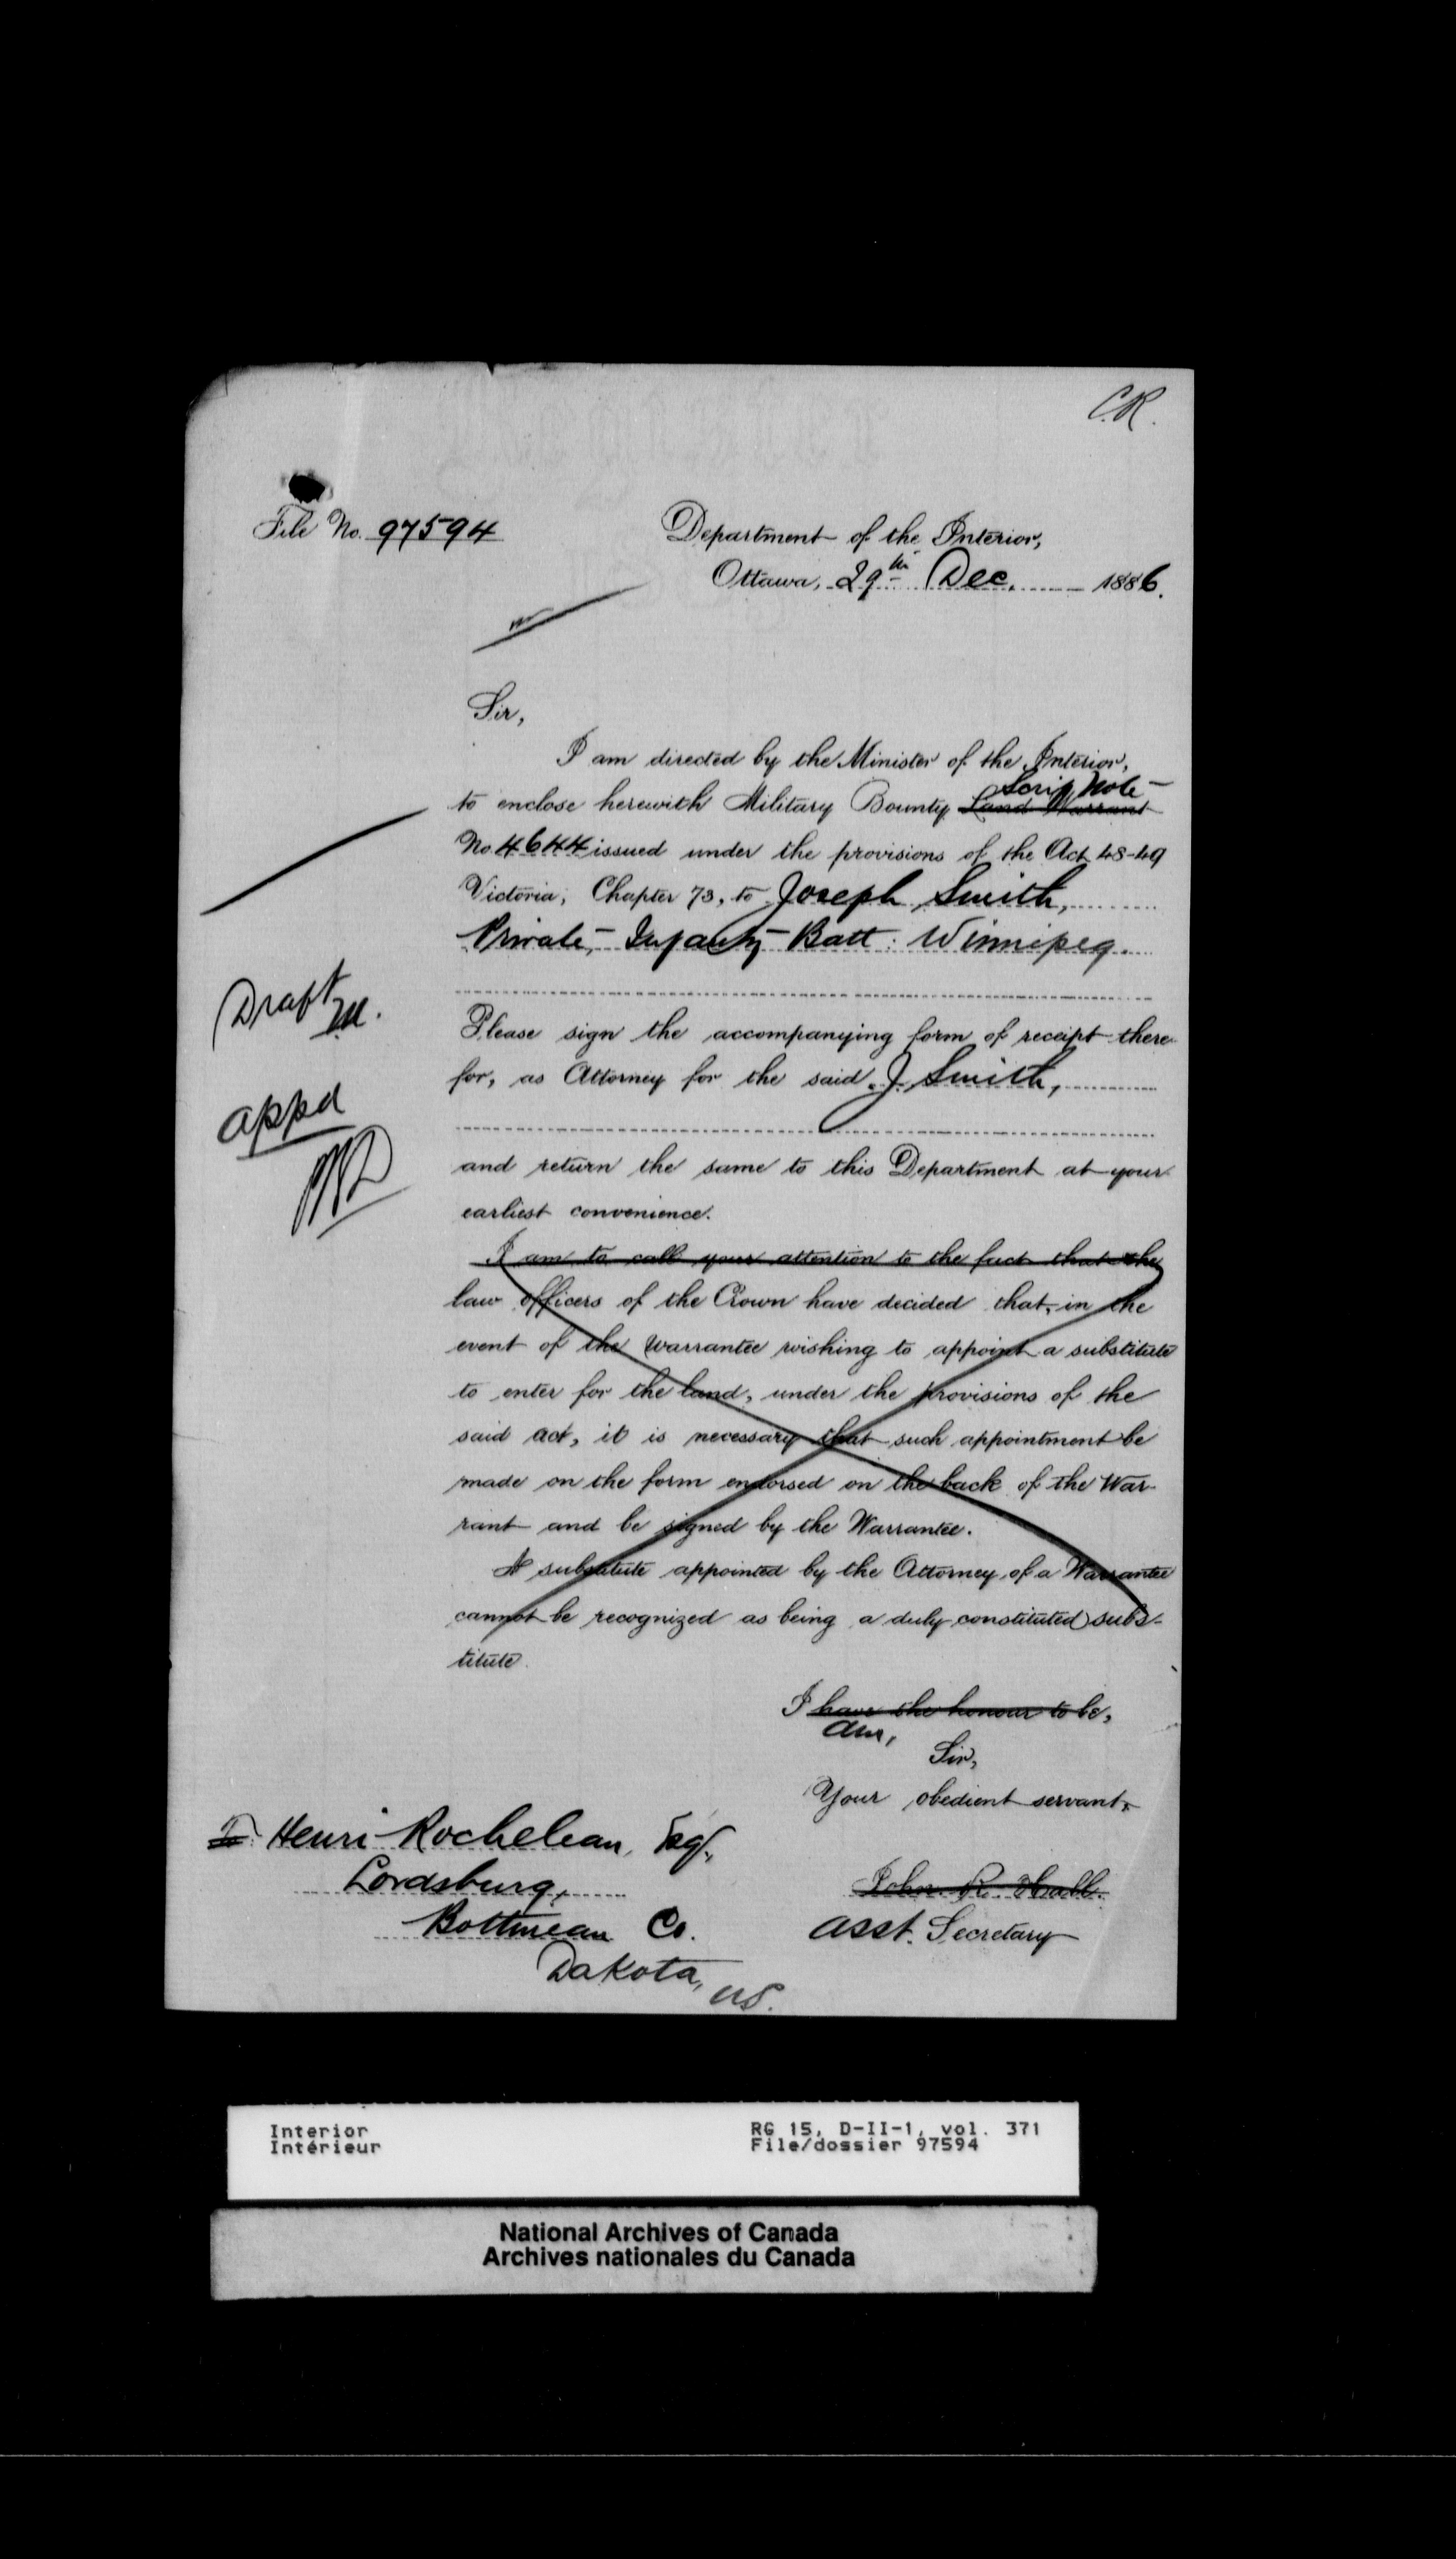 C.R.
File No. 97594
Department of the Interior,
Ottawa, 29th Dec. 1886.
Sir,
I am directed by the Minister of the Interior,
Scrip Note
to enclose herewith Military Bounty Land Warrant
No. 4644 issued under the provisions of the Act 48-49
Victoria, Chapter 73, to Joseph Smith,
Private, Infantry Batt: Winnipeg.
Draft
Please sign the accompanying form of receipt there-
for, as Attorney for the said J. Smith,
appd
and return the same to this Department at your
earliest convenience.
I am to call your attention to the fact that the
law officers of the Crown have decided that, in the
event of the Warrantee wishing to appoint a substitute
to enter for the land, under the provisions of the
said act, it is necessary that such appointment be
made on the form endorsed on the back of the War-
rant and be signed by the Warrantee.
A substitute appointed by the Attorney of a Warrantee
cannot be recognized as being a duly constituted subs-
titute.
I have the honour to be,
am,
Sir,
Your obedient servant,
Henri Rocheleau, Esq.,
Lordsburg,
John R. Hall.
Bottineau Co.
Asst. Secretary
Dakota,
US.
Interior
Intérieur
RG 15, D-II-1, vol. 371
File/dossier 97594
National Archives of Canada
Archives nationales du Canada